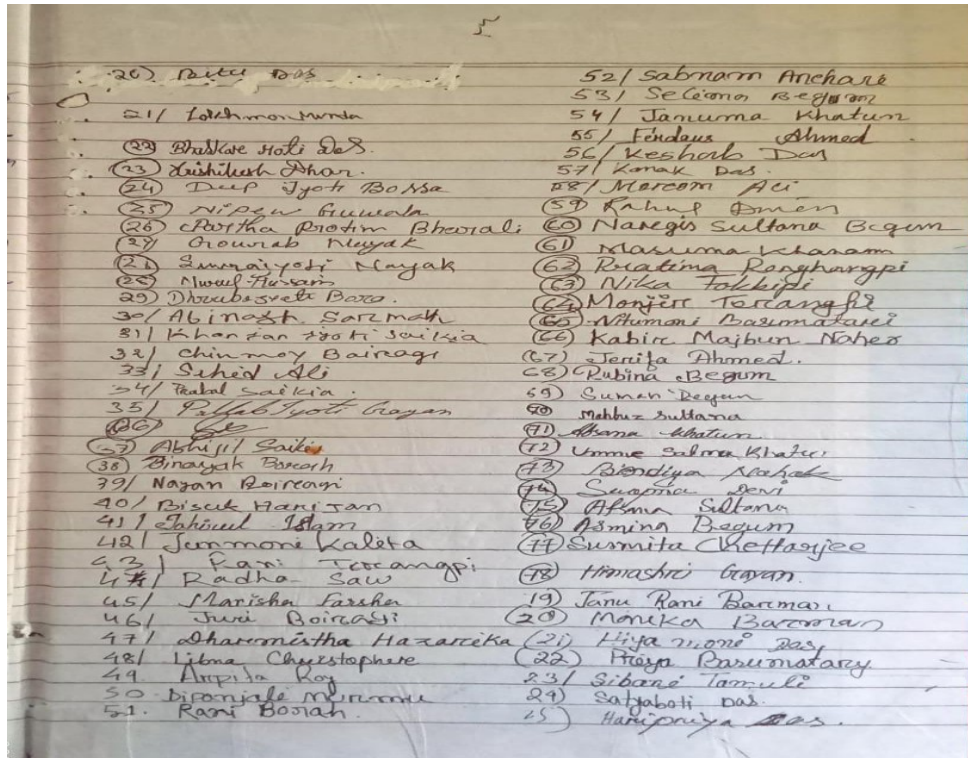 20) Bitu Das
21/ Lokhmon Munda
22) Bhaskar Joti Das.
23) Hrishikesh Dhar.
24) Deep Jyoti Bossa
25) Nipen Guwala
26) Partha Protim Bhorali
27) Gourab Nayak
Nayak
29) Dhrubajyoti Bora.
30/ Abinash Sarmah
31/ Khanjan Jyoti Saikia
32/ Chinmoy Bairagi
33/ Sehid Ali
34/ Prabal Saikia.
35/ Pallab Jyoti Gayan
(36)
(37) Abhijit Saikia
(38) Binayak Borah
39/ Nayan Boiragi
40/ Bisuk Harijan
41/ Jahirul Islam
42/ Junmoni Kaleta
43/ Rani Terangpi
44/ Radha Saw
45/ Marisha Farsha
46/ Juri Boiragi
47/ Dharmistha Hazarika
48/ Libna Chyrstophere
49. Arpita Roy
50 Diponjale Murmu
51. Rani Borah.
52/ Sabnam Anchare
53/ Selima Begum
54/ Januma Khatun
55/ Ferdaus Ahmed
56/ Keshob Das
57/ Konak Das.
58/ Morcom Ali
59) Rahul Amen
60) Naregis Sultana Begum
61) Masuma Khanam
62) Pratima Ronghangpi
63) Nika Tokbipi
64) Monjir Terangpi
65) Nitumoni Basumatari
66 Kabir Majbun Naher
(67) Jerifa Ahmed.
68) Rubina Begum
69) Suman Begum
70 Mahbuz Sultana
71) Afsana Khatun
72) Umme Salma Khatun
73) Nahak
74) Swapna Devi
75) Afsana Sultana
76) Asmina Begum
77) Susmita Chettarjee
78) Himashri Gayan.
19) Tanu Rani Barman
(20) Monika Barman
(21) Hiya moni Das
(22) Priya Basumatary
23/ Sibani Tamuli
24) Satyaboti Das.
25) Haripriya Das.